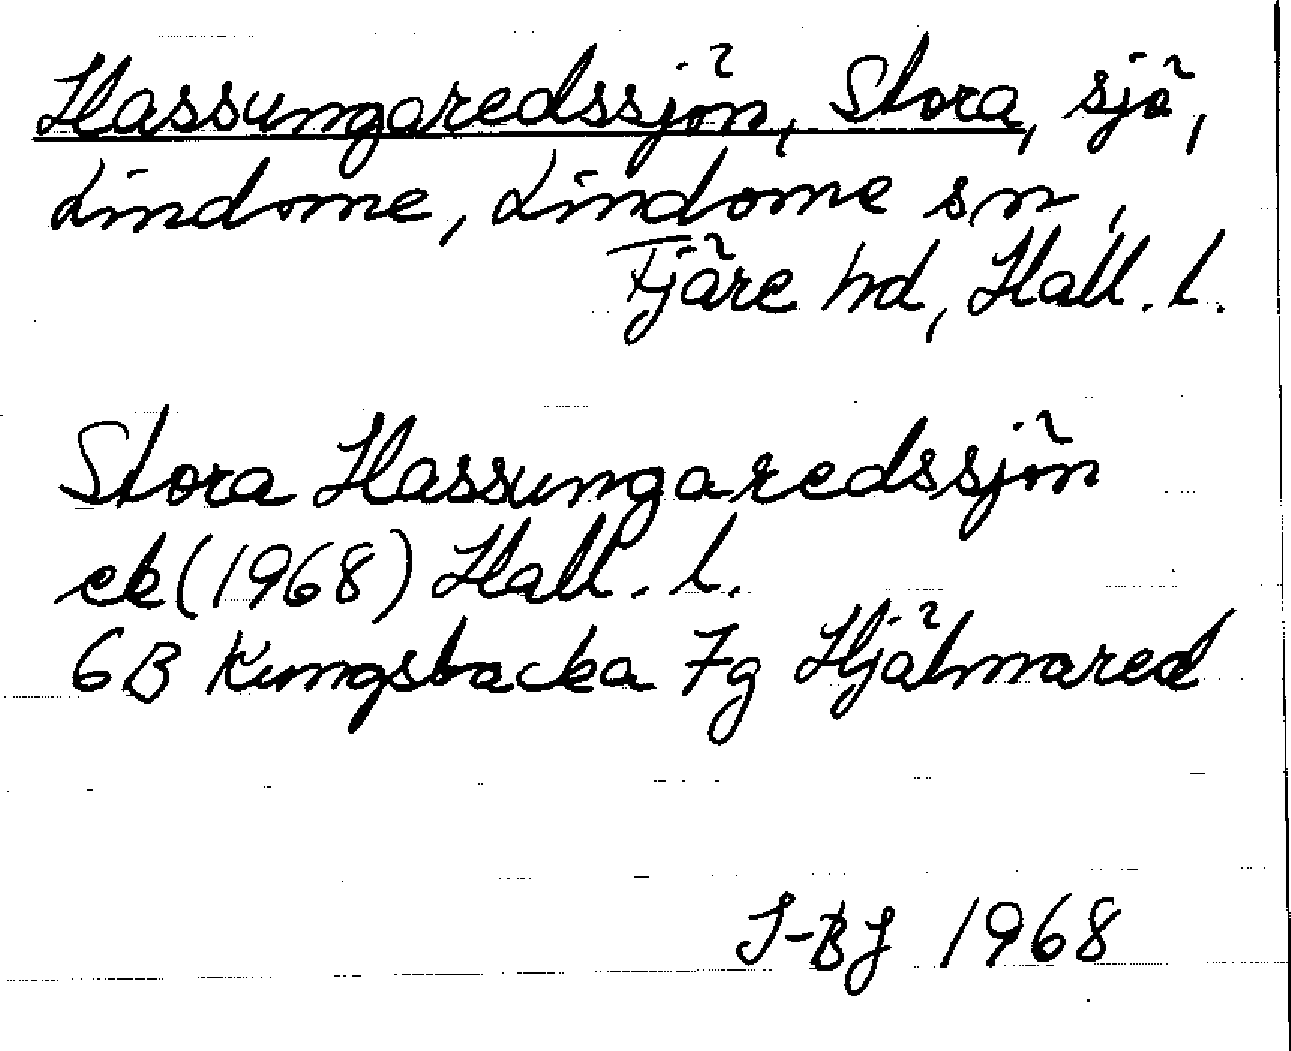 Hassungaredssjön, Stora, sjö,
Lindome, Lindome sn,
Fjäre hd, Hall. l.
Stora Hassungaredssjön
ek (1968) Hall. l.
6B Kungsbacka 7g Hjälmared
I-BJ 1968